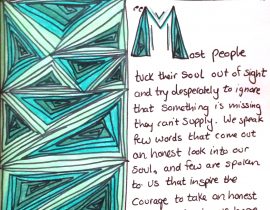 "Most people
tuck their soul out of sight
and try desperately to ignore
that something is missing
they can't supply. We speak
few words that come out
an honest look into our
soul, and few are spoken
to us that inspire the
courage to take an honest